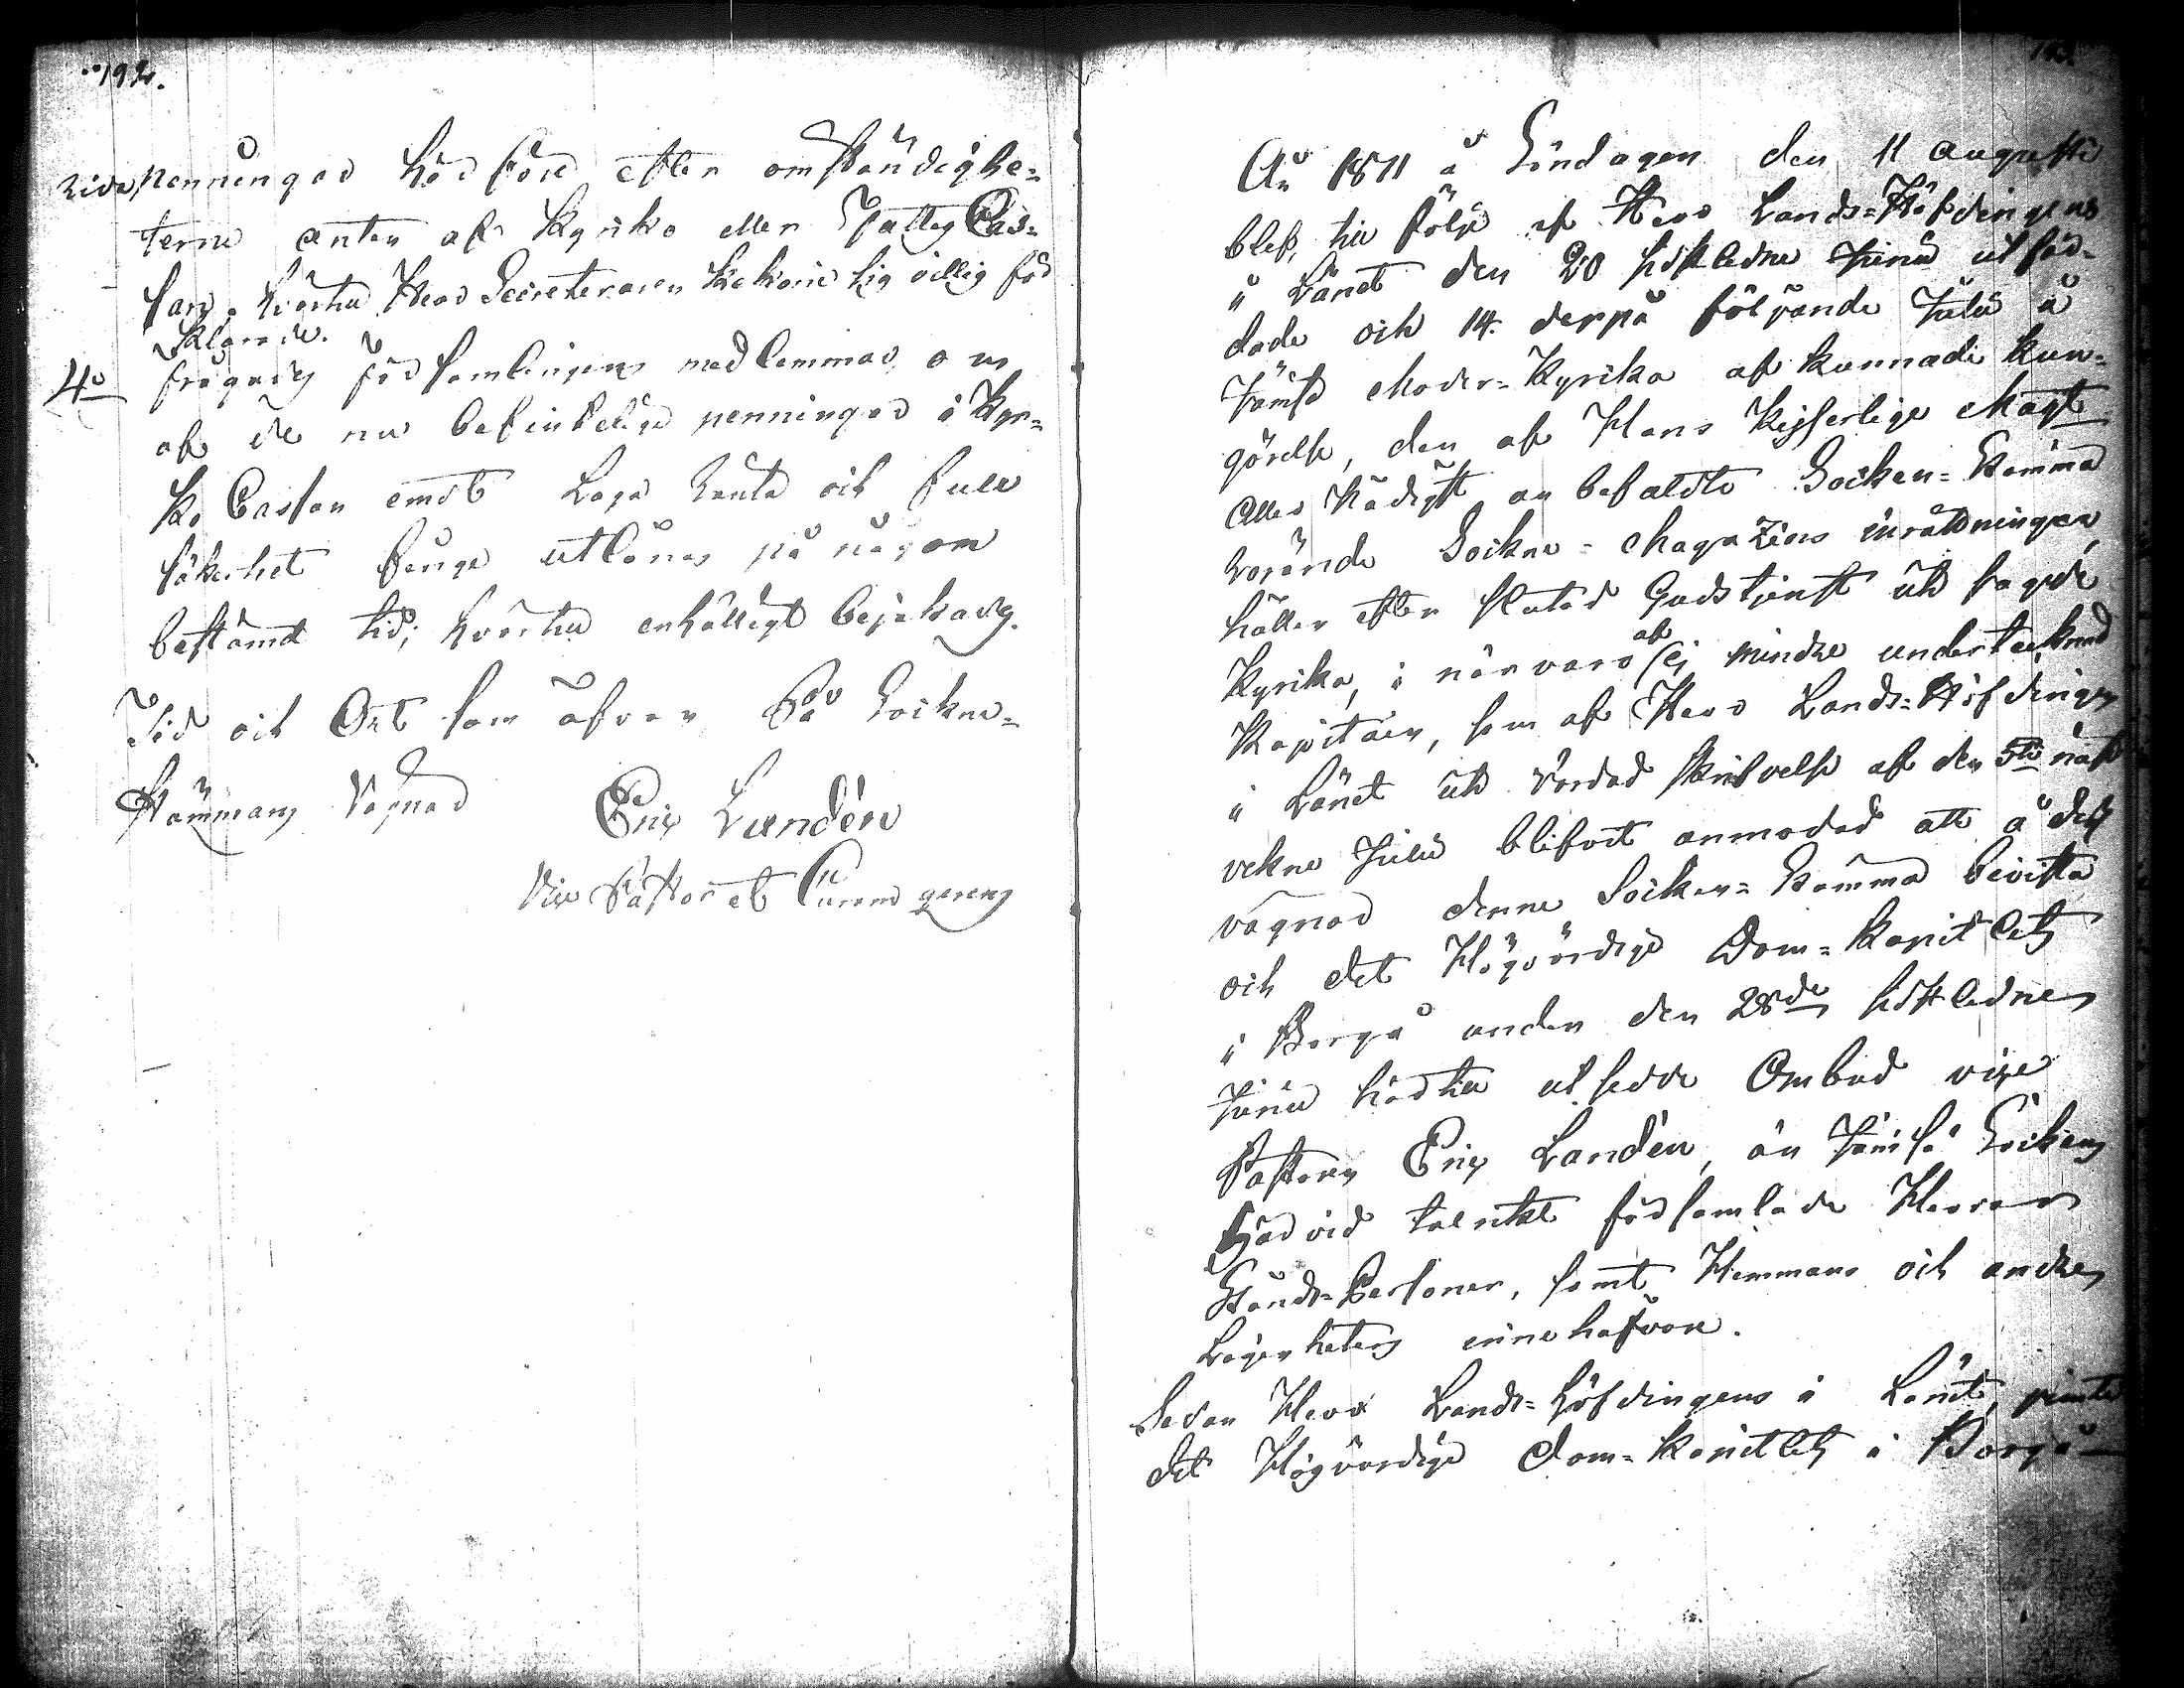 192.
penningar här före efter omständighe-
terne antin af Kyrko eller Fattig Cas-
san, hvartill Herr Secreteraren sig villig för
klarade.
4o frågades församlingens medlemmar, om
af de nu befintelige penningar i Kyr-
ko Cassan emot Laga Ränta och full
säkerhet finge utlånas på någon
bestämd tid; hvartill enhälligt bejakades.
Tid och Ort som ofvan På Sockne-
Stämmans Vägnar Eric Lundén
Vice Pastor et Curam gerens
År 1811 å Söndagen den 11 Augusti
blef, till följe af Herr Lands-Höfdingens
i Länet den 20 sistledne Junii utfär-
dade och 14 derpå följande Julii i
Jämsä Moder-Kyrka afkunnade kun-
görelse, den af Hans Kejserlige Majt
Aller Nådigst anbefaldte Socken-Stämma
rörande Sockne-Magazins inrättningen
hållen efter slutad Gudstjenst uti sagde
Kyrka, i närvaro af ej mindre undertecknad
Kapitain, som af Herr Lands-Höfdingen
i Länet uti vördad skrifvelse af den 5te näst
vekne Julii blifvit anmodad att å dess
vägnar denne Socken-Stämma bevista
och det Högvördige Dom-Kapitlets
i Borgå under den 28de sistledne
Junii härtill utsedde Ombud vice
Pastorn Eric Lundén, än Jämsä Sockens
härvid talrikt församlade Herrar
Stånds-Personer, samt Hemmans och andre
Lägenheters innehafvare.
Sedan Herr Lands-Höfdingens i Länet, jemte
det Högvördige Dom-Kapitlets i Borgå